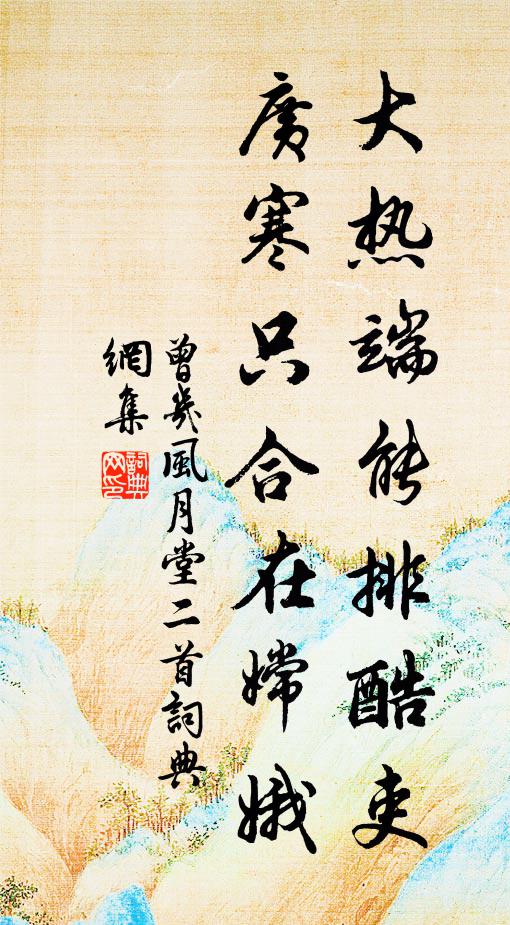 大热端能排酷吏
廣寒只合在嫦娥
曾幾風月堂二首詞典
網集
詞典網印